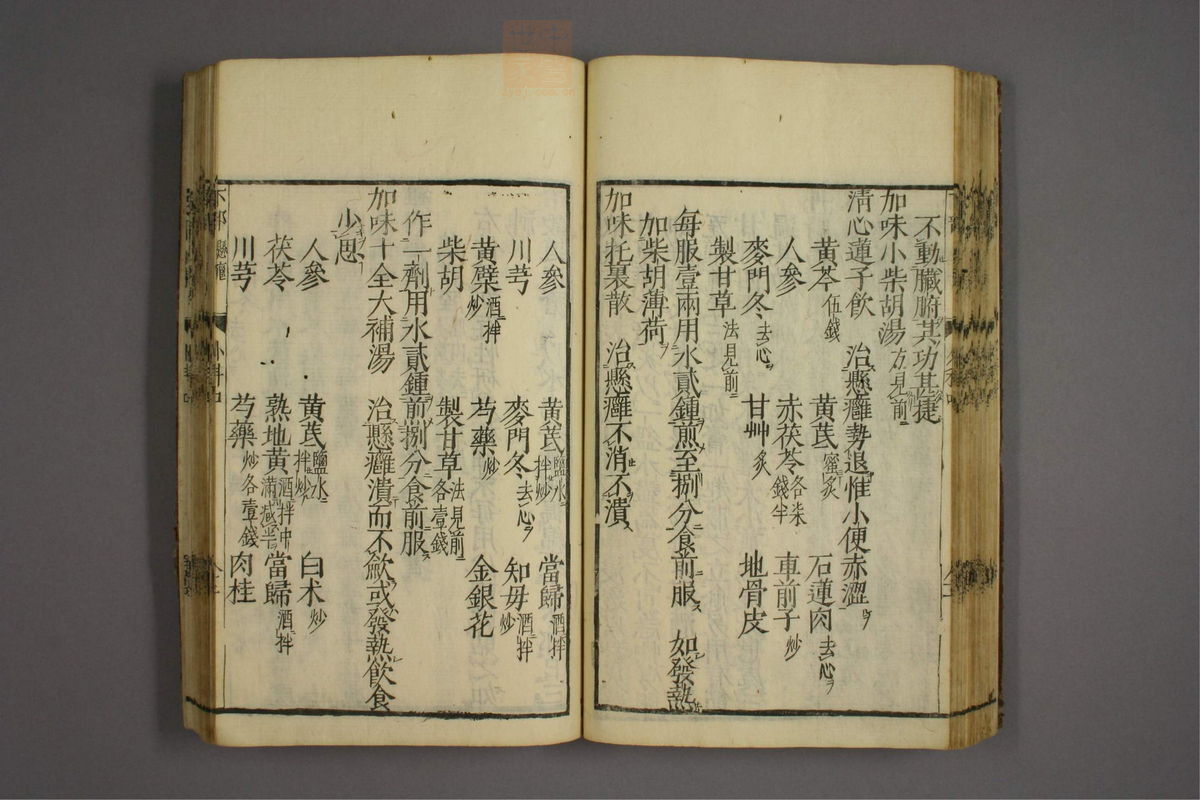 不動臟腑其功甚捷
加味小柴胡湯 方見前
清心蓮子飲 治懸癰勢退惟小便赤澀
黄芩 伍錢 黄芪 蜜炙 石蓮肉 去心
人參 赤茯苓 各柒錢半 車前子 炒
麥門冬 去心 甘艸 炙 地骨皮
製甘草 法見前
每服壹兩用水貳鍾煎至捌分食前服 如發熱
加柴胡薄荷
加味托裏散 治懸癰不消不潰
人參 黄芪 鹽水拌炒 當歸 酒拌
川芎 麥門冬 去心 知母 酒拌炒
黄蘗 酒拌炒 芍藥 炒 金銀花
柴胡 製甘草 法見前各壹錢
作一劑用水貳鍾煎捌分食前服
加味十全大補湯 治懸癰潰而不歛或發熱飲食
少思
人參 黄芪 鹽水拌炒 白术 炒
茯苓 熟地黄 酒拌中滿减半 當歸 酒拌
川芎 芍藥 炒各壹錢 肉桂
下部 懸癰